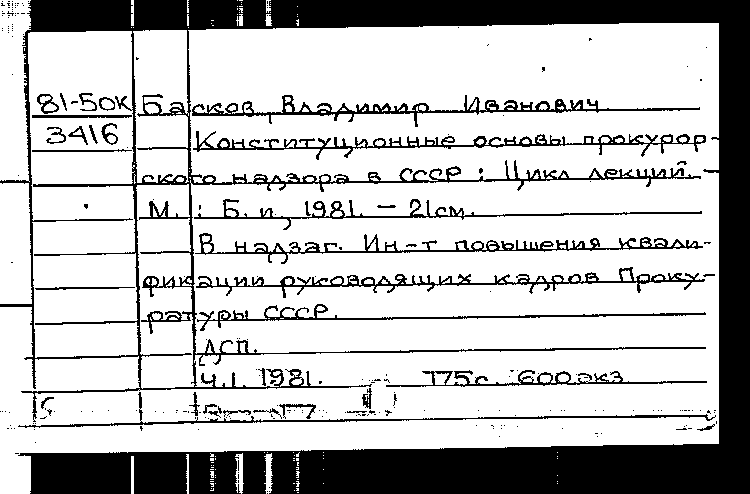 81-50К Басков, Владимир Иванович
3416 Конституционные основы прокурор-
ского надзора в СССР : Цикл лекций. -
М. : Б. и, 1981. - 21см.
В надзаг. Ин-т повышения квали-
фикации руководящих кадров Проку-
ратуры СССР.
ДСП.
Ч.1. 1981. 175с. 600экз